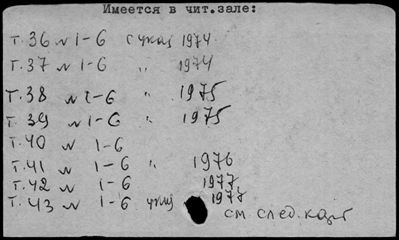 Имеется в чит.зале:
т.36 № 1-6 с указ 1974
т.37 № 1-6 " 1974
т.38 № 1-6 " 1975
т.39 № 1-6 " 1975
т.40 № 1-6
т.41 № 1-6 " 1976
т.42 № 1-6 1977
т.43 № 1-6 указ 1977
см след.